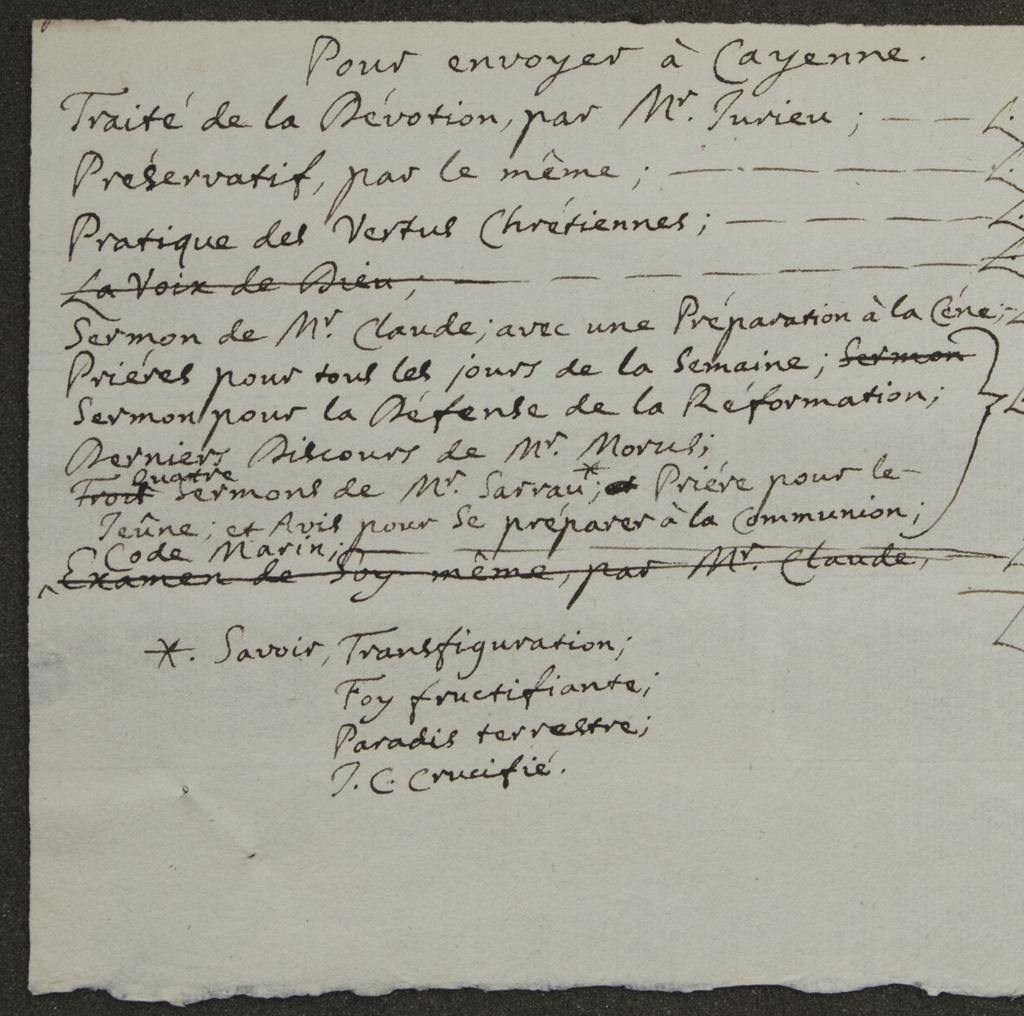 Pour envoyer à Cayenne.
Traité de la Dévotion, par Mr. Jurieu; — — L.
Préservatif, par le même; — — — — L.
Pratique des Vertus Chrétiennes; — — — — L.
La Voix de Dieu; — — — — — — L.
Sermon de Mr. Claude; avec une Préparation à la Céne; L
Priéres pour tous les jours de la Semaine; Sermon
Sermon pour la Défense de la Réformation; L
Derniers Discours de Mr. Morus;
Trois Quatre Sermons de Mr. Sarrau*; et Priére pour le
Jeûne; et Avis pour se préparer à la Communion;
Code Marin;
Examen de soy même, par Mr. Claude, — L
*. Savoir, Transfiguration;
Foy fructifiante;
Paradis terrestre;
J. C. Crucifié.